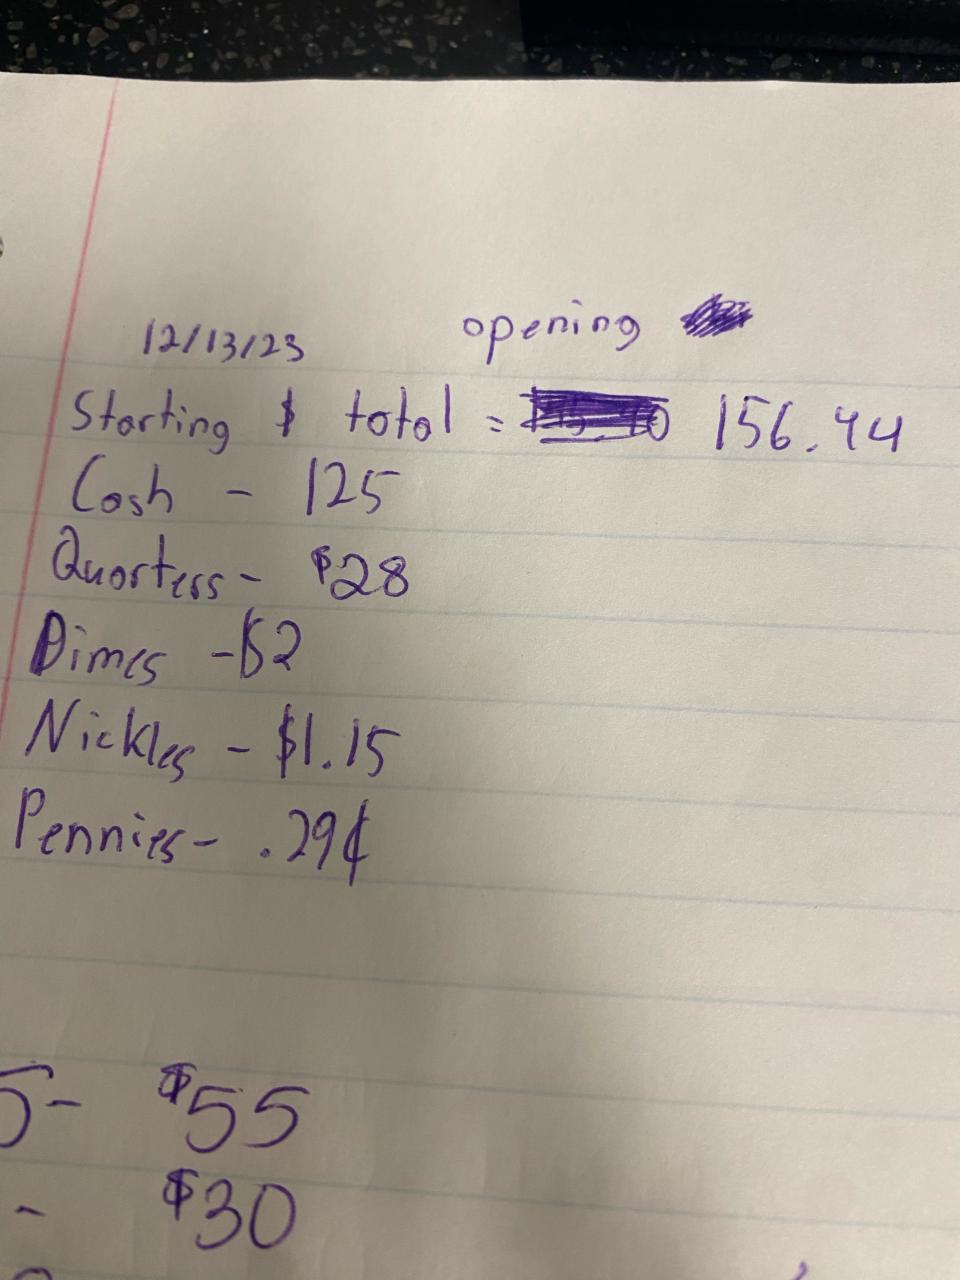 12/13/23 opening
Starting $ total = 156.44
Cash - 125
Quarters - $28
Dimes - $2
Nickles - $1.15
Pennies - .29¢
5- $55
- $30